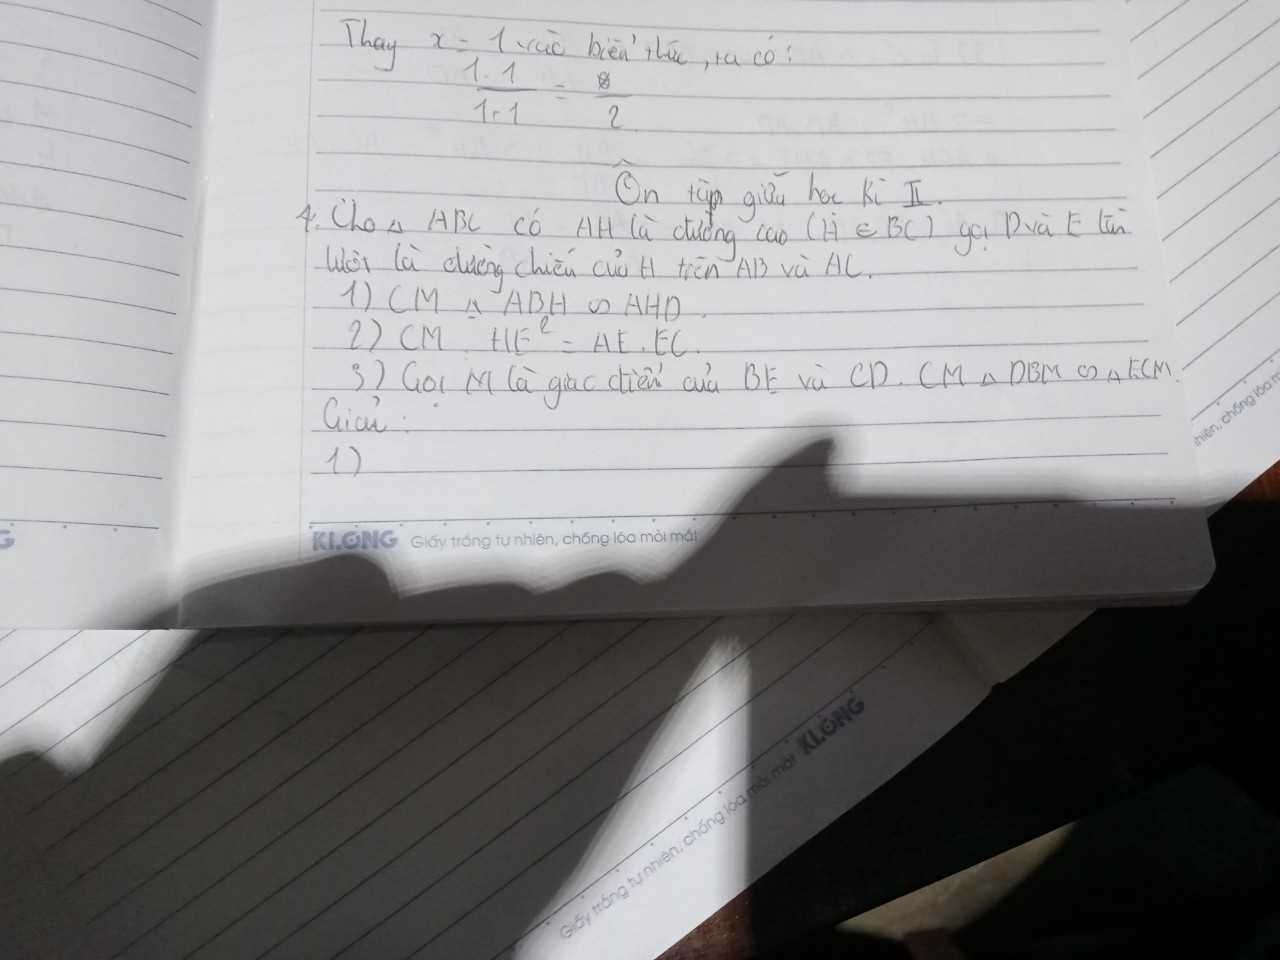 Thay x = 1 vào biểu thức, ta có:
1-1/1+1 = 0/2
Ôn tập giữa học kì II.
4. Cho △ ABC có AH là đường cao (H ∈ BC) gọi D và E lần
lượt là đường chiếu của H trên AB và AC.
1) CM △ ABH ∽ AHD.
2) CM HE² = AE.EC.
3) Gọi M là giao điểm của BE và CD. CM △ DBM ∽ △ ECM.
Giải:
1)
KLONG Giấy trắng tự nhiên, chống lóa mỏi mắt
nhiên, chống lóa m
G
Giấy trắng tự nhiên, chống lóa mỏi mắt KLONG